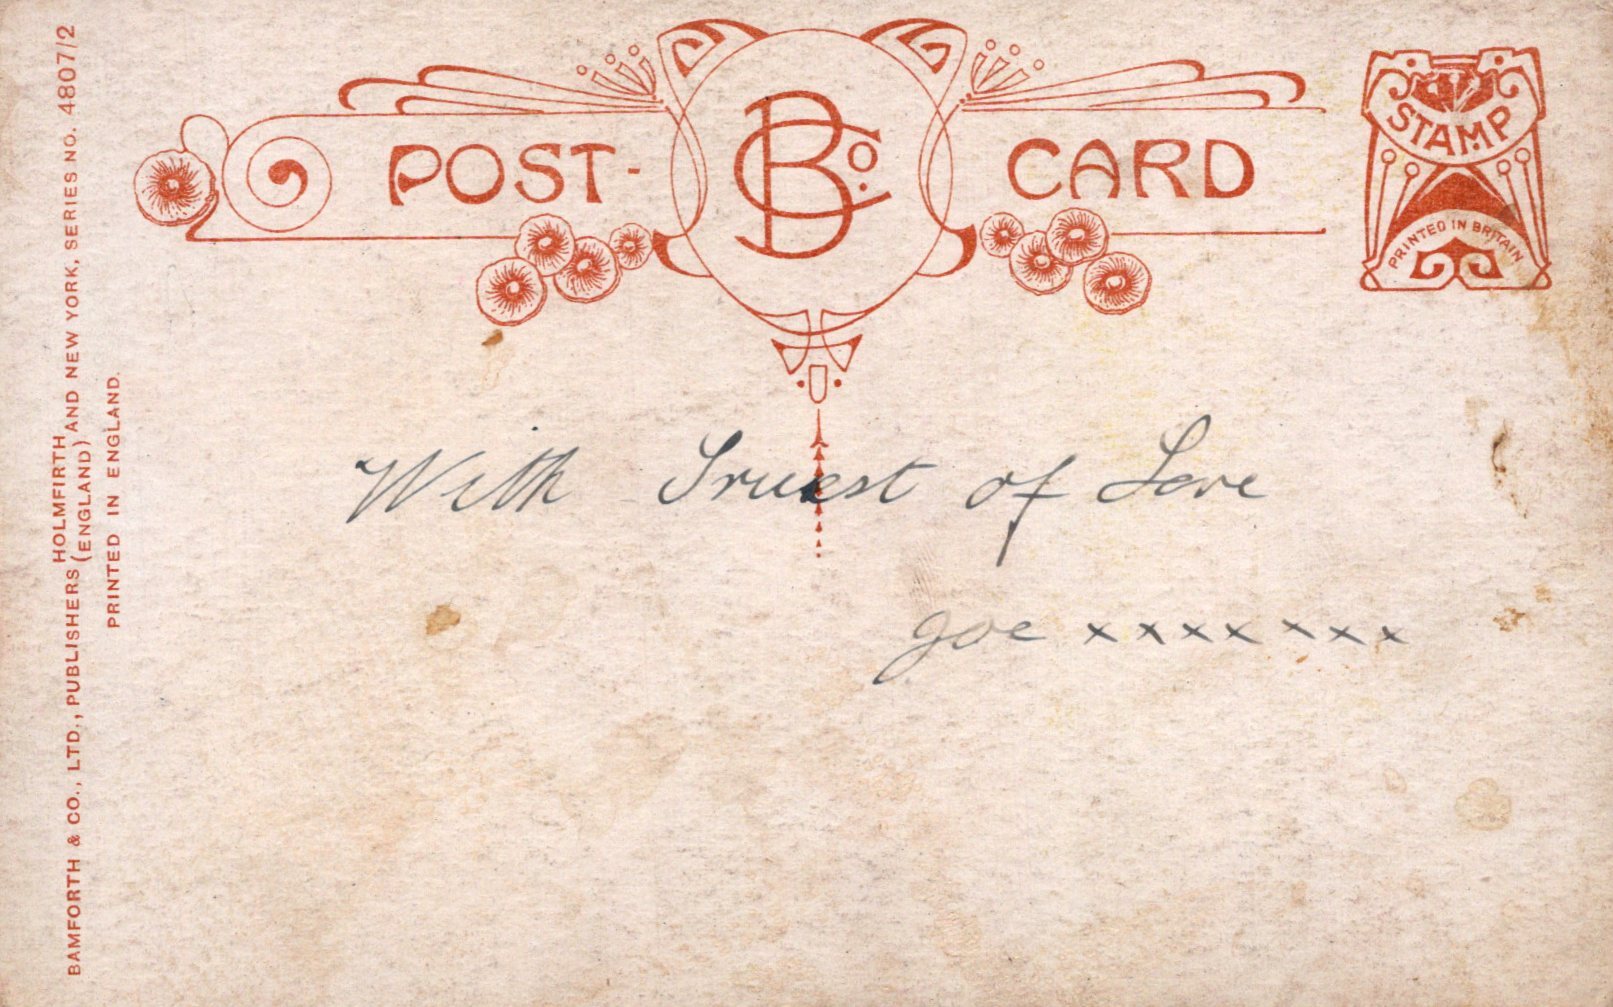 POST-CARD
BCo.
STAMP
PRINTED IN BRITAIN
With Truest of Love
Joe xxxxxxx
BAMFORTH & CO., LTD., PUBLISHERS HOLMFIRTH (ENGLAND) AND NEW YORK, SERIES NO. 4807/2
PRINTED IN ENGLAND.